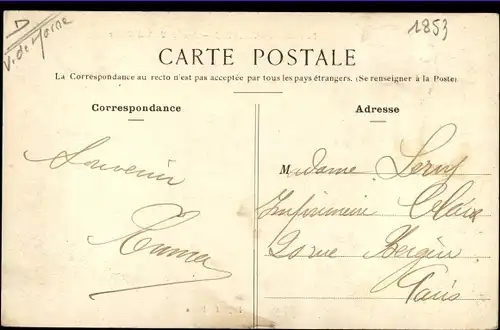 D
V. de Marne
1853
CARTE POSTALE
La Correspondance au recto n'est pas acceptée par tous les pays étrangers. (Se renseigner à la Poste)
Correspondance
Adresse
Souvenir
Madame
Imprimerie
rue Bergère
Paris